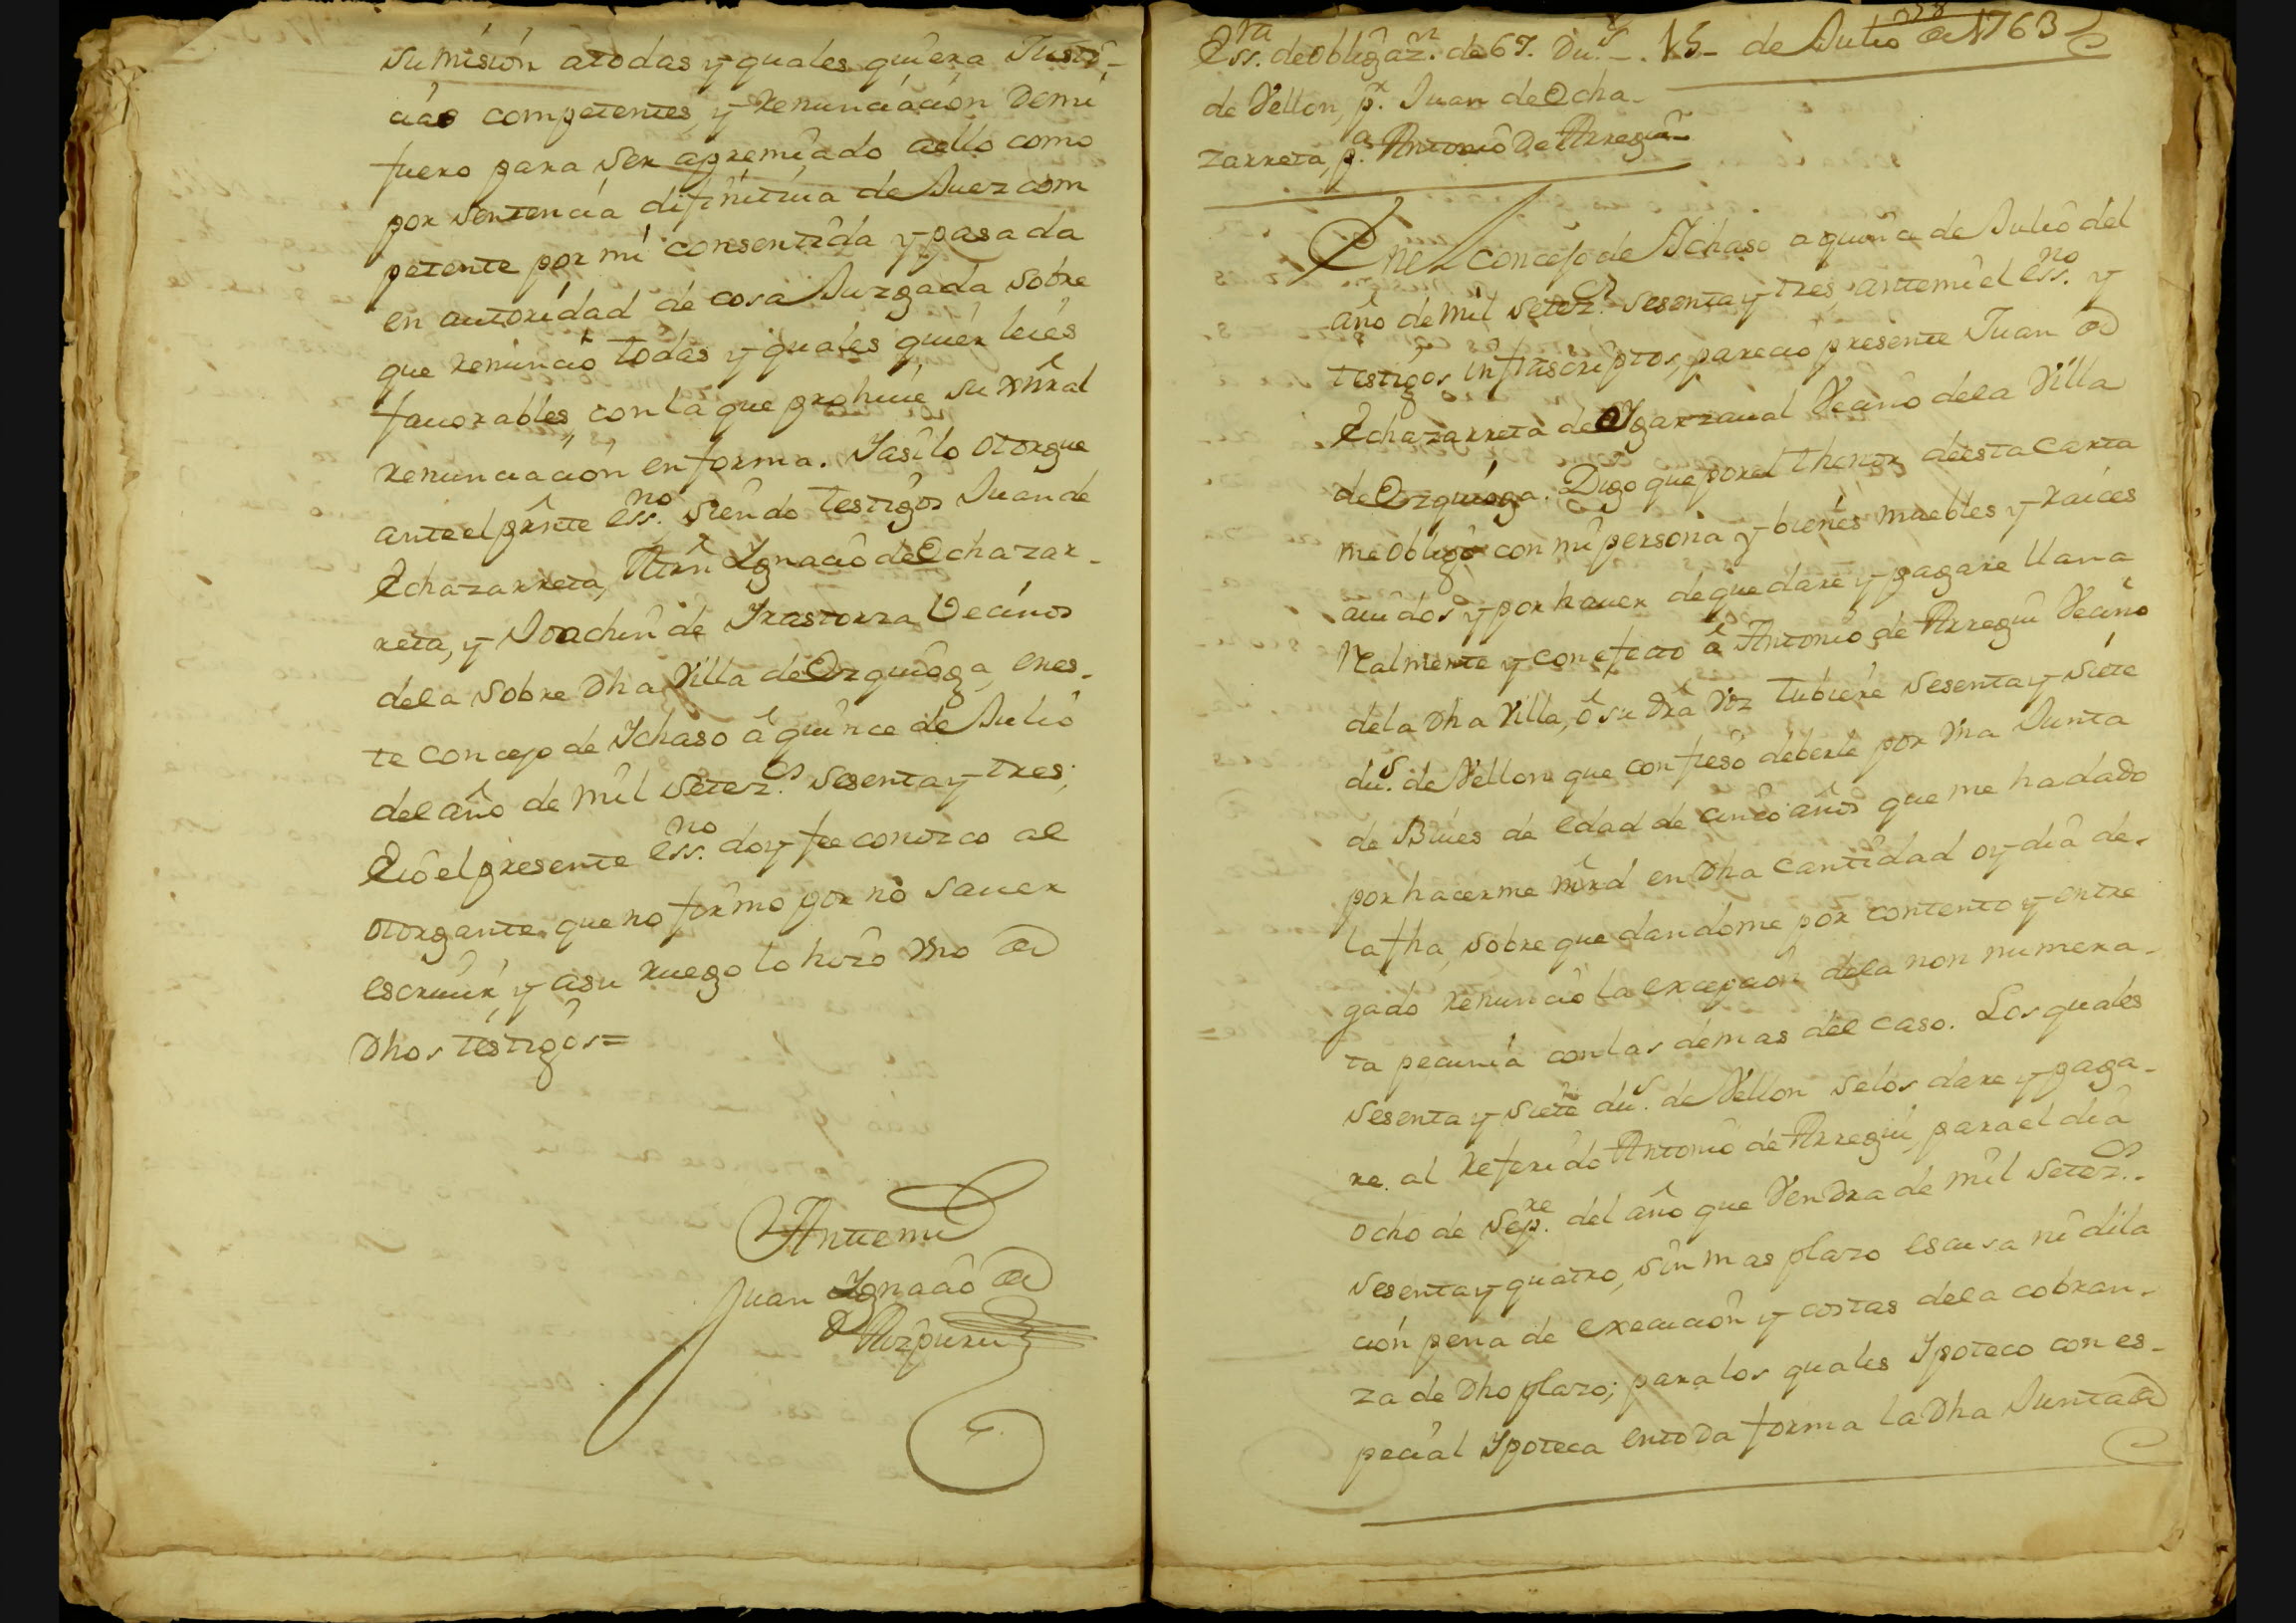 sumision atodas y quales quiera Justi-
cias competentes, y Renunciacion Demi
fuero para ser apremiado aello como
por sentencia difinitiua de Juez com
petente por mi consentida y pasada
en autoridad de cosa Juzgada sobre
que renuncio todas y quales quier leies
fauorables, con la que prohiue su xnral
renunciacion en forma. Yasilo otorgue
ante el prnte essno. siendo testigos Juan de
Echazarreta, Ignacio de Ochazar-
reta, y Joachin de Irastorza Vecinos
dela sobre Dha Villa de Ezquioga, enes-
te concejo de Ychaso â quince de Julio
del año de mil Setezos. sesenta y tres;
Eio el presente essno. doy fee conozco al
otorgante que no firmo por no sauer
escriuir, y asu ruego lo hizo Vno de
Dhos testigos=
Antemi
Juan Ignacio de
Aozpuru
Essra. de obligazn. de 67. Dus. - 15- de Julio de 1763
de Vellon, pr. Juan de Echa-
zarreta, pa. Antonio De Arregui-
Enel concejo de Ychaso, a quince de Julio del
año de mil Setezos. sesenta y tres, antemi el essno. y
testigos infrascriptos, parecio presente Juan de
Echazarreta de Ygarzaual Vecino dela Villa
de Ezquioga. Digo que porel thenor deesta Carta
me obligo con mi persona y bienes muebles y raices
auidos y por hauer de que dare y pagare llana
Realmente y con efecto â Antonio de Arregui Vecino
dela Dha Villa, ô su dra voz tubiere sesenta y siete
dus. de Vellon que confieso deberle por Vna Junta
de Bues de edad de cinco años que me ha dado
por hacerme mrd en Dha cantidad oy dia de-
la fha, sobre que dandome por contento y entre
gado renuncio la excepcion dela non numera-
ta pecunia con las demas del caso. Los quales
sesenta y siete dus. de Vellon selos dare y paga-
re. al referido Antonio de Arregui, para el dia
ocho de Sepre. del año que Vendra de mil setezos.
sesenta y quatro, sin mas plazo escusa ni dila
cion pena de execucion y costas dela cobran-
za de Dho plazo; para los quales Ypoteco con es-
pecial Ypoteca entoda forma la Dha Junta de